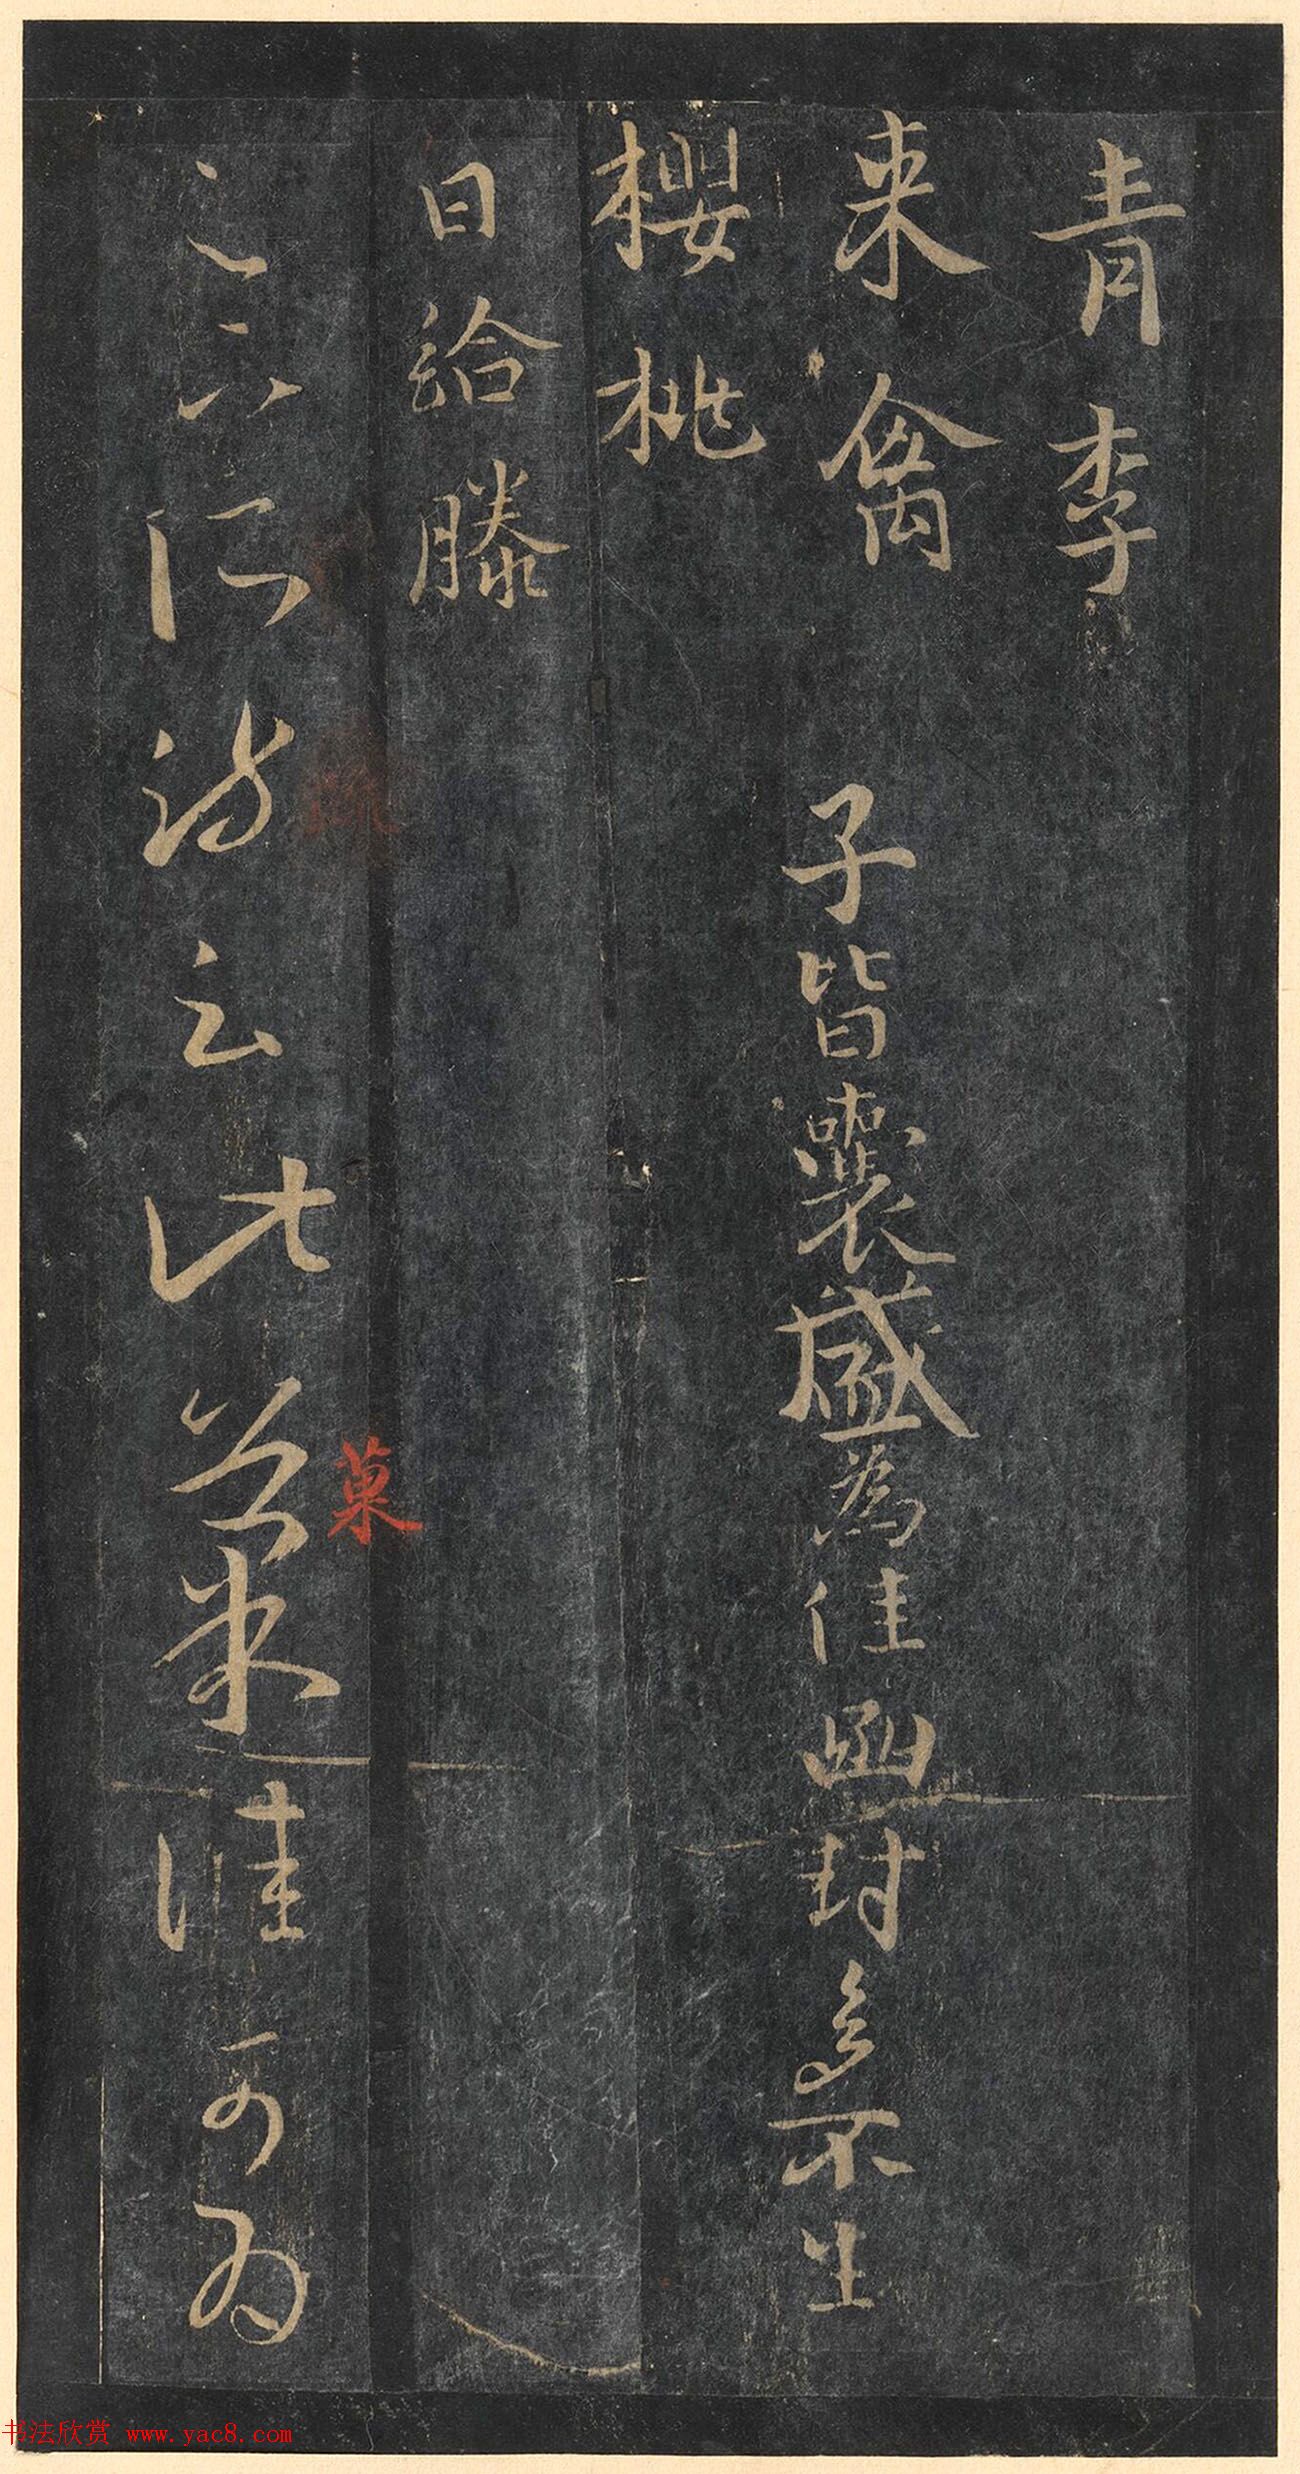 青李
来禽
櫻桃
日給滕
子皆囊盛為佳函封多不生
足下所疏云此菓佳可為
菓
书法欣赏 www.yac8.com